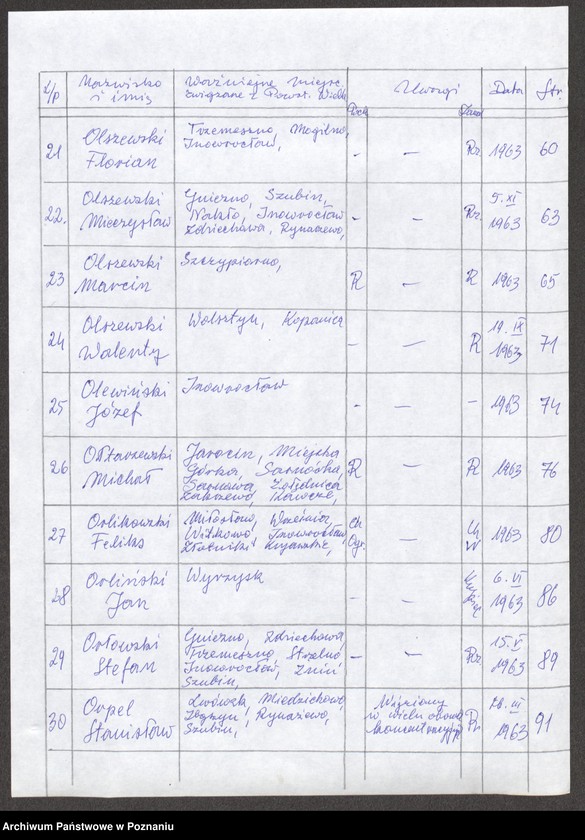 L/p Nazwisko i imię Ważniejsze miejsc. związane z Powst. Wielk. Uwagi Data Str.
21 Olszewski Florian Trzemeszno, Mogilno, Inowrocław, - — 1963 60
22. Olszewski Mieczysław Gniezno, Szubin, Nakło, Inowrocław Zdziechowa, Rynarzewo, - — 5. XI 1963 63
23 Olszewski Marcin Szczypiorno, R — R 1963 65
24 Olszewski Walenty Wolsztyn, Kopanica - — R 19. IX 1963 71
25 Olewiński Józef Inowrocław - — - 1963 74
26 Ołtarzewski Michał Jarocin, Miejska Górka, Sarnówka, Sarnowa, Żołędnica R — R 1963 76
27 Orlikowski Feliks Miłosław, Września, Witkowo, Inowrocław, Złotniki Kujawskie, — 1963 80
28 Orliński Jan Wyrzysk - — 6. VI 1963 86
29 Orłowski Stefan Gniezno, Zdziechowa Trzemeszno, Strzelno Inowrocław, Żnin Szubin, - — 15. V 1963 89
30 Orpel Stanisław Lwówek, Miedzichowo, Zbąszyń, Rynarzewo, Szubin, Więziony w wielu obozach 1963 91
Archiwum Państwowe w Poznaniu